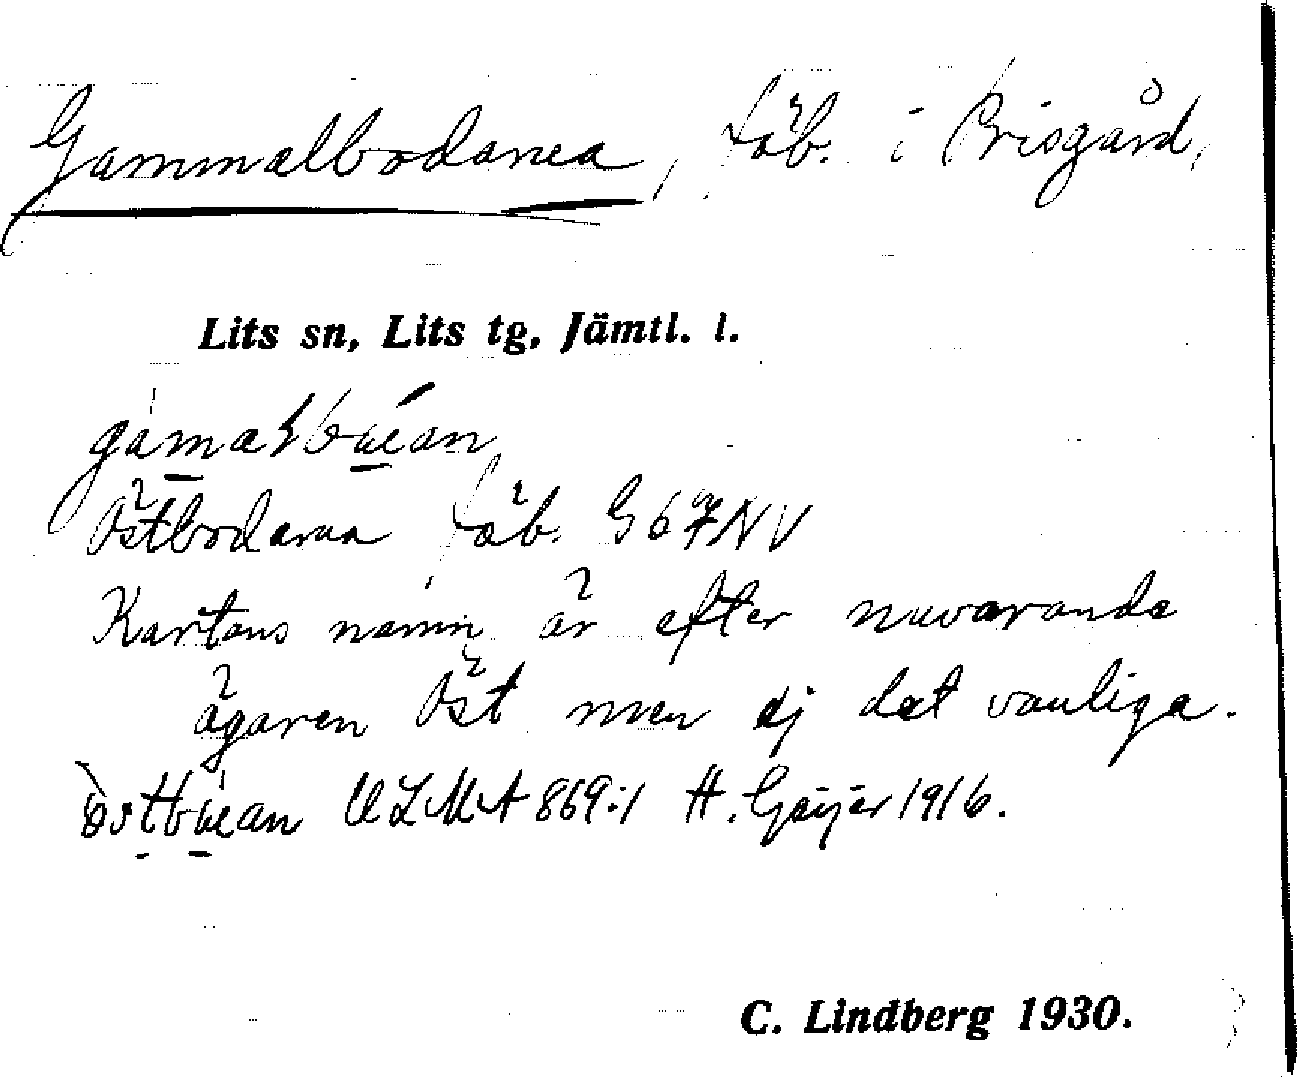 Gammalbodarna, fäb. i Brisgård,
Lits sn, Lits tg, Jämtl. l.
Östbodarna fäb. G 67 NV
Kartans namn är efter nuvarande
ägaren Öst men ej det vanliga.
ULMA 869:1 H. Geijer 1916.
C. Lindberg 1930.